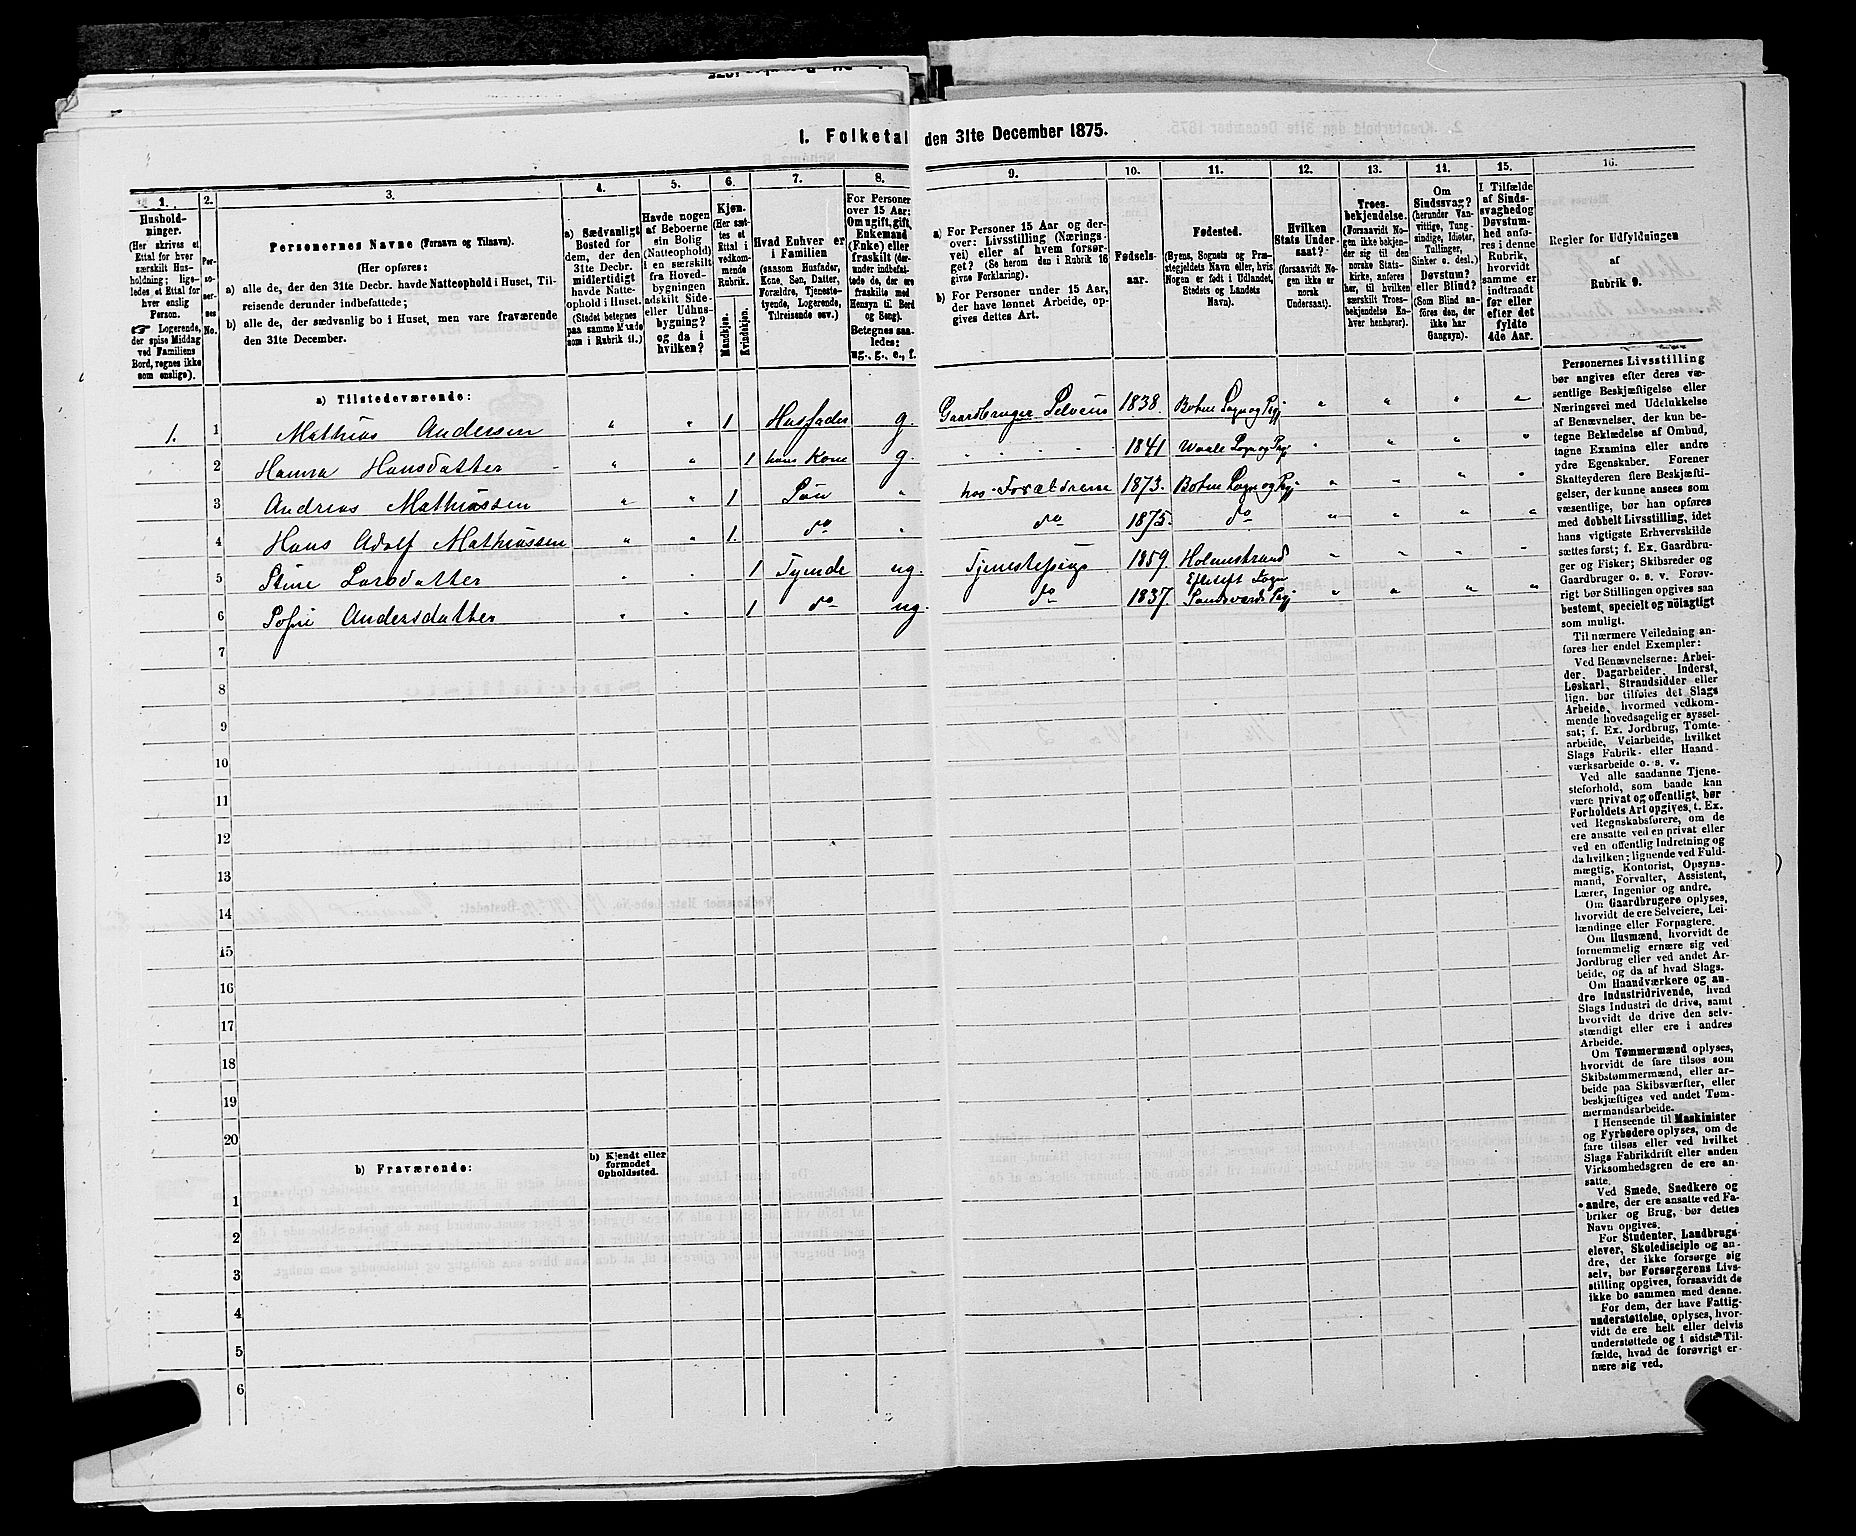 1. Folketal den 31te December 1875.
1.
Hushold-
ninger.
(Her skrives et
Ettal for hver
særskilt Hus-
holdning; lige-
ledes et Ettal for
hver enslig
Person.
☞ Logerende,
der spise Middag
ved Familiens
Bord, regnes ikke
som enslige).
2.
Per-
so-
ner-
nes
No.
3.
Personernes Navne (Fornavn og Tilnavn).
(Her opføres:
a) alle de, der den 31te Decbr. havde Natteophold i Huset, Til-
reisende derunder indbefattede;
b) alle de, der sædvanlig bo i Huset, men vare fraværende
den 31te December.
4.
a) Sædvanligt
Bosted for
dem, der den
31te Decbr.
midlertidigt
havde Natte-
ophold i Huset.
(Stedet betegnes
paa samme Maade
som i Rubrik 11.)
5.
Havde nogen
af Beboerne
sin Bolig
(Natteophold)
i en særskilt
fra Hoved-
bygningen
adskilt Side-
eller Udhus-
bygning?
og da i
hvilken?
6.
Kjøn.
(Her sæt-
tes et
Ettal i
vedkom-
mende
Rubrik.
Mandkjøn.
Kvindekjøn.
7.
Hvad Enhver er
i Familien
(saasom Husfader,
Kone, Søn, Datter,
Forældre, Tjeneste-
tyende, Logerende,
Tilreisende osv.)
8.
For Personer
over 15 Aar:
Om ugift, gift,
Enkemand
(Enke) eller
fraskilt (der-
under indbefat-
tede de, der ere
fraskilte med
Hensyn til Bord
og Seng).
Betegnes saa-
ledes:
ug., g., e., f.
9.
a) For Personer 15 Aar og der-
over: Livsstilling (Nærings-
vei) eller af hvem forsør-
get? (Se herom den i Rubrik 16
givne Forklaring).
b) For Personer under 15 Aar,
der have lønnet Arbeide, op-
gives dettes Art.
10.
Fødsels-
aar.
11.
Fødested.
(Byens, Sognets og Præ-
stegjeldets Navn eller, hvis
Nogen er født i Udlandet,
Stedets og Landets
Navn).
12.
Hvilken
Stats Under-
saat?
(forsaavidt No-
gen ikke er
norsk
Undersaat).
13.
Troes-
bekjendelse.
(Forsaavidt No-
gen ikke bekjen-
der sig til den
norske Stats-
kirke, anføres
her, til hvilken
særskilt Troes-
bekjendelse En-
hver henhører).
14.
Om
Sindssvag?
(herunder Van-
vittige, Tung-
sindige, Idioter,
Tullinger,
Sinker o. desl.)
Døvstum?
eller Blind?
(Som Blind an-
føres den, der
ikke har
Gangsyn).
15.
I Tilfælde
af Sinds-
svaghed og
Døvstum-
hed anfø-
res i denne
Rubrik,
hvorvidt
samme er
indtraadt
før eller
efter det
fyldte
4de Aar.
16.
Regler for Udfyldningen
af
Rubrik 9.
a) Tilstedeværende:
1. 1 Mathias Andersen " " 1 Husfader g. Gaardbruger Selveier 1838. Botne Sogn og Pgj " " " "
2 Hanna Hansdatter " " 1 hans Kone g. " " " " 1841 Waale Sogn og Pgj " " " "
3 Andreas Mathiassen " " 1 Søn " hos Forældrene 1873. Botne Sogn og Pgj " " " "
4 Hans Adolf Mathiassen " " 1. do " do 1875. do " " " "
5 Stine Larsdatter " " 1 Tyende ug. Tjenestepige 1859. Holmestrand " " " "
6 Sofie Andersdatter " " 1 do ug. do 1837. Efteløt Sogn Sandsværds Pgj " " " "
7
8
9
10
11
12
13
14
15
16
17
18
19
20
b) Fraværende:
b) Kjendt eller
formodet
Opholdssted.
1
2
3
4
5
6
Personernes Livsstilling
bør angives efter deres væ-
sentlige Beskjæftigelse eller
Næringsvei med Udelukkelse
af Benævnelser, der kun be-
tegne Beklædelse af Ombud,
tagne Examina eller andre
ydre Egenskaber. Forener
Skatteyderen flere Beskjæfti-
gelser, der kunne ansees som
væsentlige, bør han opføres
med dobbelt Livsstilling, idet
hans vigtigste Erhvervskilde
sættes først; f. Ex. Gaardbru-
ger og Fisker; Skibsreder og
Gaardbruger o. s. v. Forøv-
rigt bør Stillingen opgives saa
bestemt, specielt og nøiagtigt
som muligt.
Til nærmere Veiledning an-
føres her endel Exempler:
Ved Benævnelserne: Arbei-
der, Dagarbeider, Inderst,
Løskarl, Strandsidder eller
lign. bør tilføies det Slags
Arbeide, hvormed vedkom-
mende hovedsagelig er syssel-
sat; f. Ex. Jordbrug, Tomte-
arbeide, Veiarbeide, hvilket
Slags Fabrik- eller Haand-
værksarbeide o. s. v.
Ved alle saadanne Tjene-
steforhold, som baade kan
være privat og offentligt, bør
Forholdets Art opgives, t. Ex.
ved Regnskabsførere, om de
ere ansatte ved en privat eller
ved en offentlig Indretning og
da hvilken; lignende ved Fuld-
mægtig, Kontorist, Opsyns-
mand, Forvalter, Assistent,
Lærer, Ingeniør og andre.
Om Gaardbrugere oplyses,
hvorvidt de ere Selveiere, Lei-
lændinge eller Forpagtere.
Om Husmænd, hvorvidt de
fornemmelig ernære sig ved
Jordbrug eller ved andet Ar-
beide, og da af hvad Slags.
Om Haandværkere og an-
dre Industridrivende, hvad
Slags Industri de drive, samt
hvorvidt de drive den selv-
stændigt eller ere i andres
Arbeide.
Om Tømmermænd oplyses,
hvorvidt de fare tilsøs som
Skibstømmermænd, eller ar-
beide paa Skibsværfter, eller
beskjæftiges ved andet Tøm-
mermandsarbeide.
I Henseende til Maskinister
og Fyrbødere oplyses, om de
fare tilsøs eller ved hvilket
Slags Fabrikdrift eller anden
Virksomhedsgren de ere an-
satte.
Ved Smede, Snedkere og
andre, der ere ansatte ved Fa-
briker og Brug, bør dettes
Navn opgives.
For Studenter, Landbrugs-
elever, Skoledisciple og an-
dre, der ikke forsørge sig
selv, bør Forsørgerens Livs-
stilling opgives, forsaavidt de
ikke bo sammen med denne.
For dem, der have Fattig-
understøttelse, oplyses, hvor-
vidt de ere helt eller delvis
understøttede og i sidste Til-
fælde, hvad de forøvrigt er-
nære sig ved.